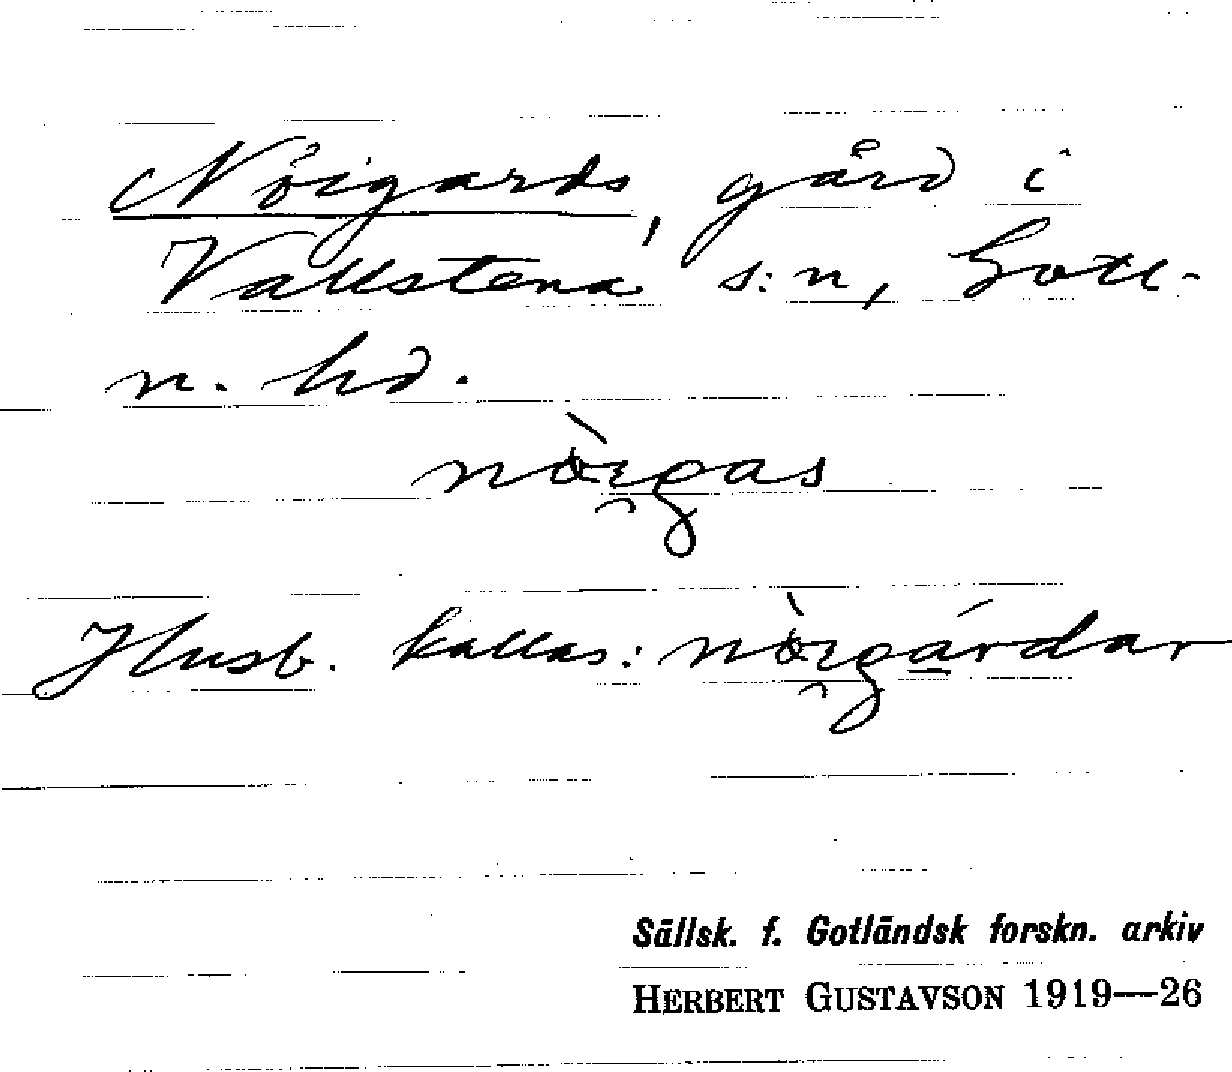 Nöigards, gård i
Vallstena s:n, Gotl.
n. hd.
nòi̯gas
Husb. kallas: nòi̯gárdar
Sällsk. f. Gotländsk forskn. arkiv
HERBERT GUSTAVSON 1919—26